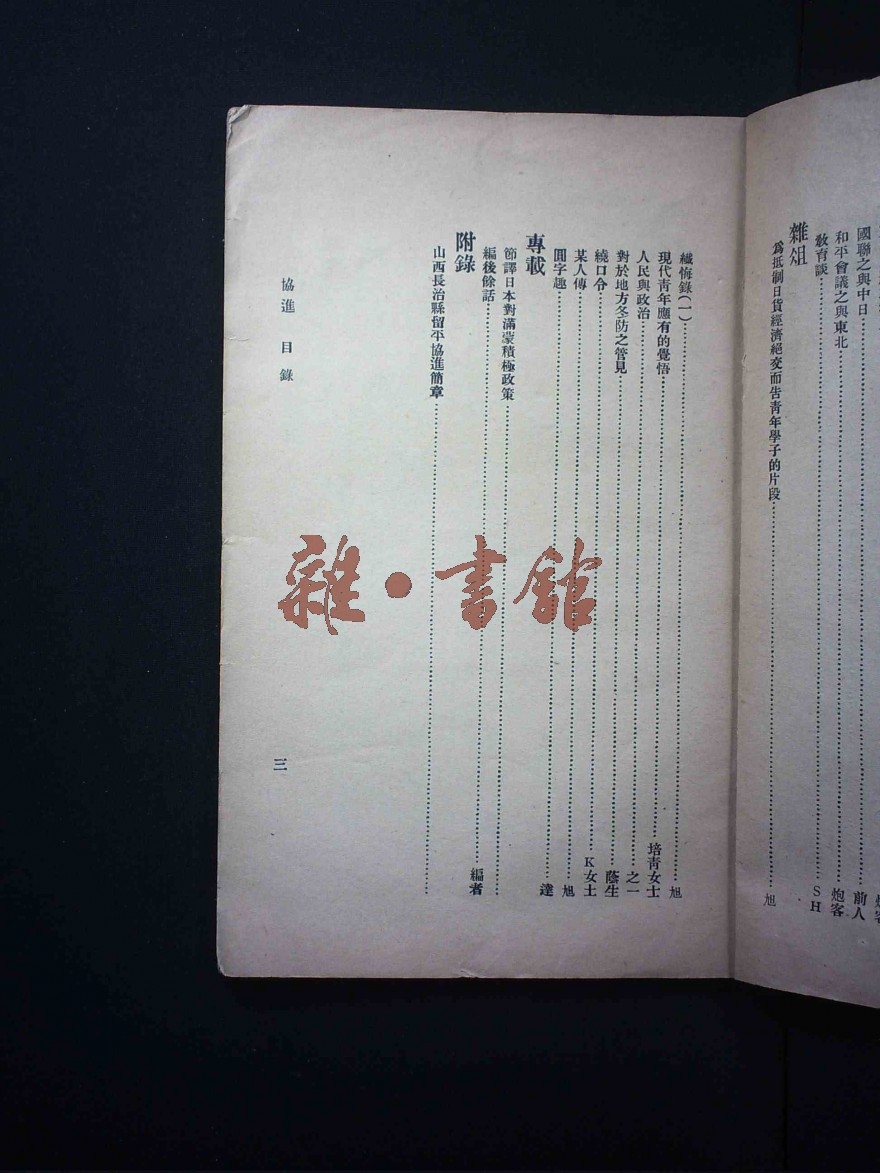 國聯之與中日……前人
和平會議之與東北……炮客
教育談……SH
雜俎
爲抵制日貨經濟絕交而告靑年學子的片段……旭
懺悔錄(一)……旭
現代靑年應有的覺悟……培靑女士
人民與政治……之一
對於地方冬防之管見……蔭生
繞口令……K女士
某人傳……旭
圓字趣……達
專載
節譯日本對滿蒙積極政策……
編後餘話……編者
附錄
山西長治縣留平協進簡章……
協進 目錄
三
雜·書館